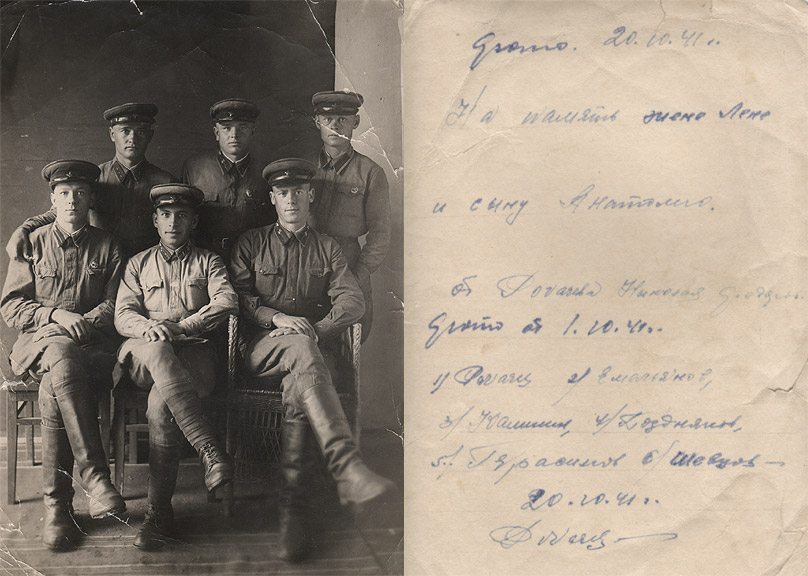 Фото. 20.10.41 г.
На память жене Лене
и сыну Анатолию.
от Николая
фото от 1.10.41 г.
1) 2) Емельянов,
3) Калинин, 4) Поздняков,
5) Герасимов 6) Шевцов
20.10.41 г.